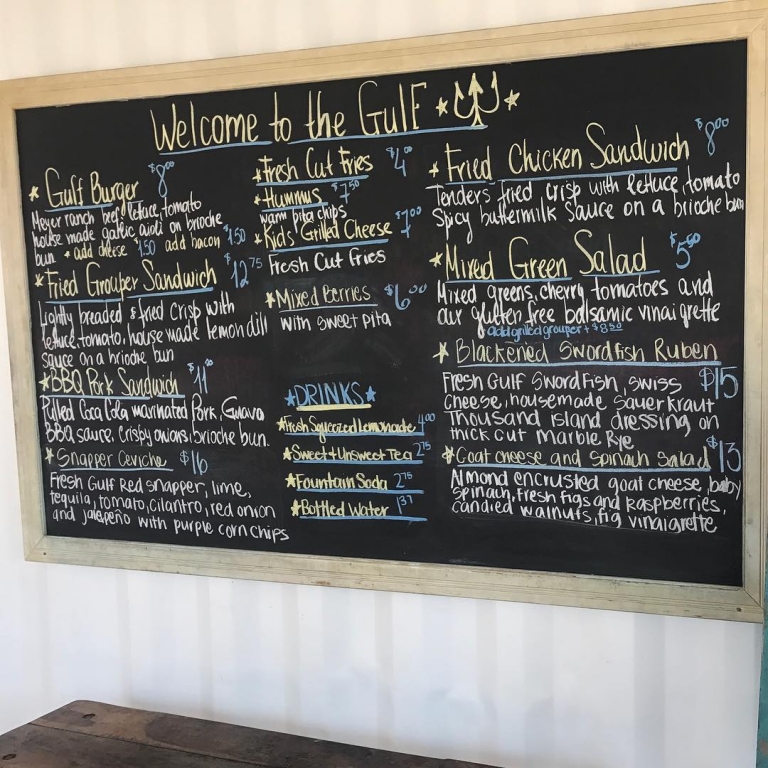 Welcome to the Gulf
Gulf Burger $8.00
Meyer ranch beef, lettuce, tomato
house made garlic aioli on brioche
bun * add cheese $1.50 add bacon $1.50
Fried Grouper Sandwich $12.75
Lightly breaded & fried crisp with
lettuce, tomato, house made lemon dill
sauce on a brioche bun
BBQ Pork Sandwich $11.00
Pulled Coca Cola marinated Pork, Guava
BBQ sauce, crispy onions, brioche bun.
Snapper Ceviche $16
Fresh Gulf Red snapper, lime,
tequila, tomato, cilantro, red onion
and jalapeño with purple corn chips
Fresh Cut Fries $4.00
Hummus $7.50
warm pita chips
Kids' Grilled Cheese $7.00
Fresh Cut Fries
Mixed Berries $6.00
with sweet pita
DRINKS
Fresh Squeezed Lemonade 4.00
Sweet + Unsweet Tea 2.75
Fountain Soda 2.75
Bottled Water 1.37
Fried Chicken Sandwich $8.00
Tenders fried crisp with lettuce, tomato
Spicy buttermilk sauce on a brioche bun
Mixed Green Salad $5.50
Mixed greens, cherry tomatoes and
our gluten free balsamic vinaigrette
add grilled grouper + $8.50
Blackened Swordfish Ruben
Fresh Gulf Swordfish, swiss $15
cheese, housemade sauerkraut
Thousand island dressing on
thick cut Marble Rye
Goat cheese and spinach salad $13
Almond encrusted goat cheese, baby
spinach, fresh figs and raspberries,
candied walnuts, fig vinaigrette